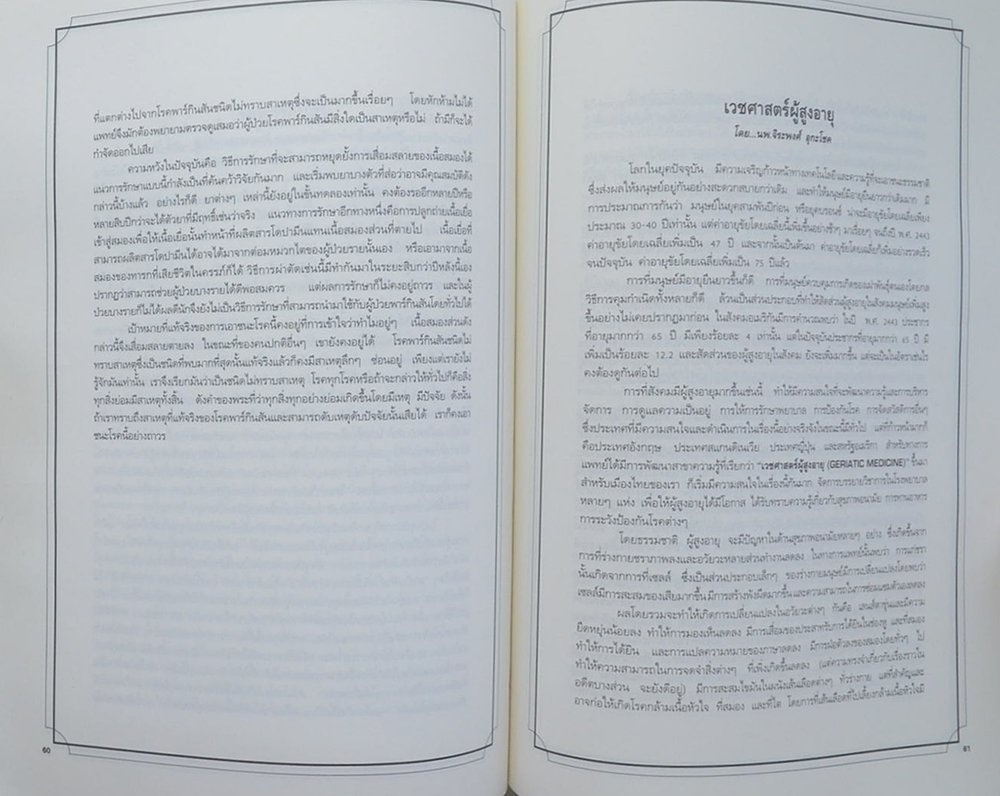 ที่แตกต่างไปจากโรคพาร์กินสันชนิดไม่ทราบสาเหตุซึ่งจะเป็นมากขึ้นเรื่อยๆ โดยหักห้ามไม่ได้
แพทย์จึงมักต้องพยายามตรวจดูเสมอว่าผู้ป่วยโรคพาร์กินสันมีสิ่งใดเป็นสาเหตุหรือไม่ ถ้ามีก็จะได้
กำจัดออกไปเสีย
ความหวังในปัจจุบันคือ วิธีการรักษาที่จะสามารถหยุดยั้งการเสื่อมสลายของเนื้อสมองได้
แนวการรักษาแบบนี้กำลังเป็นที่ค้นคว้าวิจัยกันมาก และเริ่มพบยาบางตัวที่ส่อว่าอาจมีคุณสมบัติดัง
กล่าวนี้บ้างแล้ว อย่างไรก็ดี ยาต่างๆ เหล่านี้ยังอยู่ในขั้นทดลองเท่านั้น คงต้องรออีกหลายปีหรือ
หลายสิบปีกว่าจะได้ตัวยาที่มีฤทธิ์เช่นว่าจริง แนวทางการรักษาอีกทางหนึ่งคือการปลูกถ่ายเนื้อเยื่อ
เข้าสู่สมองเพื่อให้เนื้อเยื่อนั้นทำหน้าที่ผลิตสารโดปามีนแทนเนื้อสมองส่วนที่ตายไป เนื้อเยื่อที่
สามารถผลิตสารโดปามีนได้อาจได้มาจากต่อมหมวกไตของผู้ป่วยรายนั้นเอง หรือเอามาจากเนื้อ
สมองของทารกที่เสียชีวิตในครรภ์ก็ได้ วิธีการผ่าตัดเช่นนี้มีทำกันมาในระยะสิบกว่าปีหลังนี้เอง
ปรากฏว่าสามารถช่วยผู้ป่วยบางรายได้ดีพอสมควร แต่ผลการรักษาก็ไม่คงอยู่ถาวร และในผู้
ป่วยบางรายก็ไม่ได้ผลดีนักจึงยังไม่เป็นวิธีการรักษาที่สามารถนำมาใช้กับผู้ป่วยพาร์กินสันโดยทั่วไปได้
เป้าหมายที่แท้จริงของการเอาชนะโรคนี้คงอยู่ที่การเข้าใจว่าทำไมอยู่ๆ เนื้อสมองส่วนดัง
กล่าวนี้จึงเสื่อมสลายตายลง ในขณะที่ของคนปกติอื่นๆ เขายังคงอยู่ได้ โรคพาร์กินสันชนิดไม่
ทราบสาเหตุซึ่งเป็นชนิดที่พบมากที่สุดนั้นแท้จริงแล้วก็คงมีสาเหตุลึกๆ ซ่อนอยู่ เพียงแต่เรายังไม่
รู้จักมันเท่านั้น เราจึงเรียกมันว่าเป็นชนิดไม่ทราบสาเหตุ โรคทุกโรคหรือถ้าจะกล่าวให้ทั่วไปก็คือสิ่ง
ทุกสิ่งย่อมมีสาเหตุทั้งสิ้น ดังคำของพระที่ว่าสิ่งทุกอย่างย่อมเกิดขึ้นโดยมีเหตุ มีปัจจัย ดังนั้น
ถ้าเราทราบถึงสาเหตุที่แท้จริงของโรคพาร์กินสันและสามารถดับเหตุดับปัจจัยนั้นเสียได้ เราก็คงเอา
ชนะโรคนี้อย่างถาวร
60
เวชศาสตร์ผู้สูงอายุ
โดย...นพ.จิระพงศ์ อุกะโชค
โลกในยุคปัจจุบัน มีความเจริญก้าวหน้าทางเทคโนโลยีและความรู้ที่จะเอาชนะธรรมชาติ
ซึ่งส่งผลให้มนุษย์อยู่กันอย่างสะดวกสบายกว่าเดิม และทำให้มนุษย์มีอายุยืนยาวกว่าเดิมมาก มี
การประมาณการกันว่า มนุษย์ในยุคสามพันปีก่อน หรือยุคบรอนซ์ น่าจะมีอายุขัยโดยเฉลี่ยเพียง
ประมาณ 30-40 ปีเท่านั้น แต่ค่าอายุขัยโดยเฉลี่ยนี้เพิ่มขึ้นอย่างช้าๆ มาเรื่อยๆ จนถึงปี พ.ศ. 2443
ค่าอายุขัยโดยเฉลี่ยเพิ่มเป็น 47 ปี และจากนั้นเป็นต้นมา ค่าอายุขัยโดยเฉลี่ยก็เพิ่มอย่างรวดเร็ว
จนปัจจุบัน ค่าอายุขัยโดยเฉลี่ยเพิ่มเป็น 75 ปีแล้ว
การที่มนุษย์มีอายุยืนยาวขึ้นก็ดี การที่มนุษย์ควบคุมการเกิดของเผ่าพันธุ์ตนเองโดยกล
วิธีการคุมกำเนิดทั้งหลายก็ดี ล้วนเป็นส่วนประกอบที่ทำให้สัดส่วนผู้สูงอายุในสังคมมนุษย์เพิ่มสูง
ขึ้นอย่างไม่เคยปรากฏมาก่อน ในสังคมอเมริกันมีการคำนวณพบว่า ในปี พ.ศ. 2443 ประชากร
ที่อายุมากกว่า 65 ปี มีเพียงร้อยละ 4 เท่านั้น แต่ในปัจจุบันประชากรที่อายุมากกว่า 65 ปี มี
เพิ่มเป็นร้อยละ 12.2 และสัดส่วนของผู้สูงอายุในสังคม ยังจะเพิ่มมากขึ้น แต่จะเป็นในอัตราเช่นไร
คงต้องดูกันต่อไป
การที่สังคมมีผู้สูงอายุมากขึ้นเช่นนี้ ทำให้มีความสนใจที่จะพัฒนาความรู้และการบริหาร
จัดการ การดูแลความเป็นอยู่ การให้การรักษาพยาบาล การป้องกันโรค การจัดสวัสดิการอื่นๆ
ซึ่งประเทศที่มีความสนใจและดำเนินการในเรื่องนี้อย่างจริงจังในขณะนี้มีทั่วไป แต่ที่ก้าวหน้ามากก็
คือประเทศอังกฤษ ประเทศสแกนดิเนเวีย ประเทศญี่ปุ่น และสหรัฐอเมริกา สำหรับทางการ
แพทย์ได้มีการพัฒนาสาขาความรู้ที่เรียกว่า "เวชศาสตร์ผู้สูงอายุ (GERIATIC MEDICINE)" ขึ้นมา
สำหรับเมืองไทยของเรา ก็เริ่มมีความสนใจในเรื่องนี้กันมาก จัดการบรรยายวิชาการในโรงพยาบาล
หลายๆ แห่ง เพื่อให้ผู้สูงอายุได้มีโอกาส ได้รับทราบความรู้เกี่ยวกับสุขภาพอนามัย การทานอาหาร
การระวังป้องกันโรคต่างๆ
โดยธรรมชาติ ผู้สูงอายุ จะมีปัญหาในด้านสุขภาพอนามัยหลายๆ อย่าง ซึ่งเกิดขึ้นจาก
การที่ร่างกายชราภาพลงและอวัยวะหลายส่วนทำงานลดลง ในทางการแพทย์นั้นพบว่า การแก่ชรา
นั้นเกิดจากการที่เซลล์ ซึ่งเป็นส่วนประกอบเล็กๆ ของร่างกายมนุษย์มีการเปลี่ยนแปลงโดยพบว่า
เซลล์มีการสะสมของเสียมากขึ้น มีการสร้างพังผืดมากขึ้น และความสามารถในการซ่อมแซมตัวเองลดลง
ผลโดยรวมจะทำให้เกิดการเปลี่ยนแปลงในอวัยวะต่างๆ กันคือ เลนส์ตาขุ่นและมีความ
ยืดหยุ่นน้อยลง ทำให้การมองเห็นลดลง มีการเสื่อมของประสาทรับการได้ยินในช่องหู และที่สมอง
ทำให้การได้ยิน และการแปลความหมายของภาษาลดลง มีการฝ่อตัวลงของสมองโดยทั่วๆ ไป
ทำให้ความสามารถในการจดจำสิ่งต่างๆ ที่เพิ่งเกิดขึ้นลดลง (แต่ความทรงจำเกี่ยวกับเรื่องราวใน
อดีตบางส่วน จะยังดีอยู่) มีการสะสมไขมันในผนังเส้นเลือดต่างๆ ทั่วร่างกาย แต่ที่สำคัญและ
อาจก่อให้เกิดโรคกล้ามเนื้อหัวใจ ที่สมอง และที่ไต โดยการที่เส้นเลือดที่ไปเลี้ยงกล้ามเนื้อหัวใจมี
61